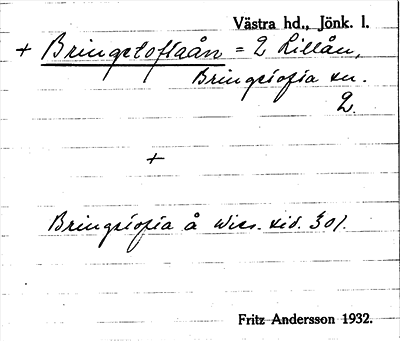 Västra hd., Jönk. l.
+ Bringetoftaån = 2 Lillån,
Bringetofta sn.
2.
+
Bringetofta å Wies. sid. 301.
Fritz Andersson 1932.